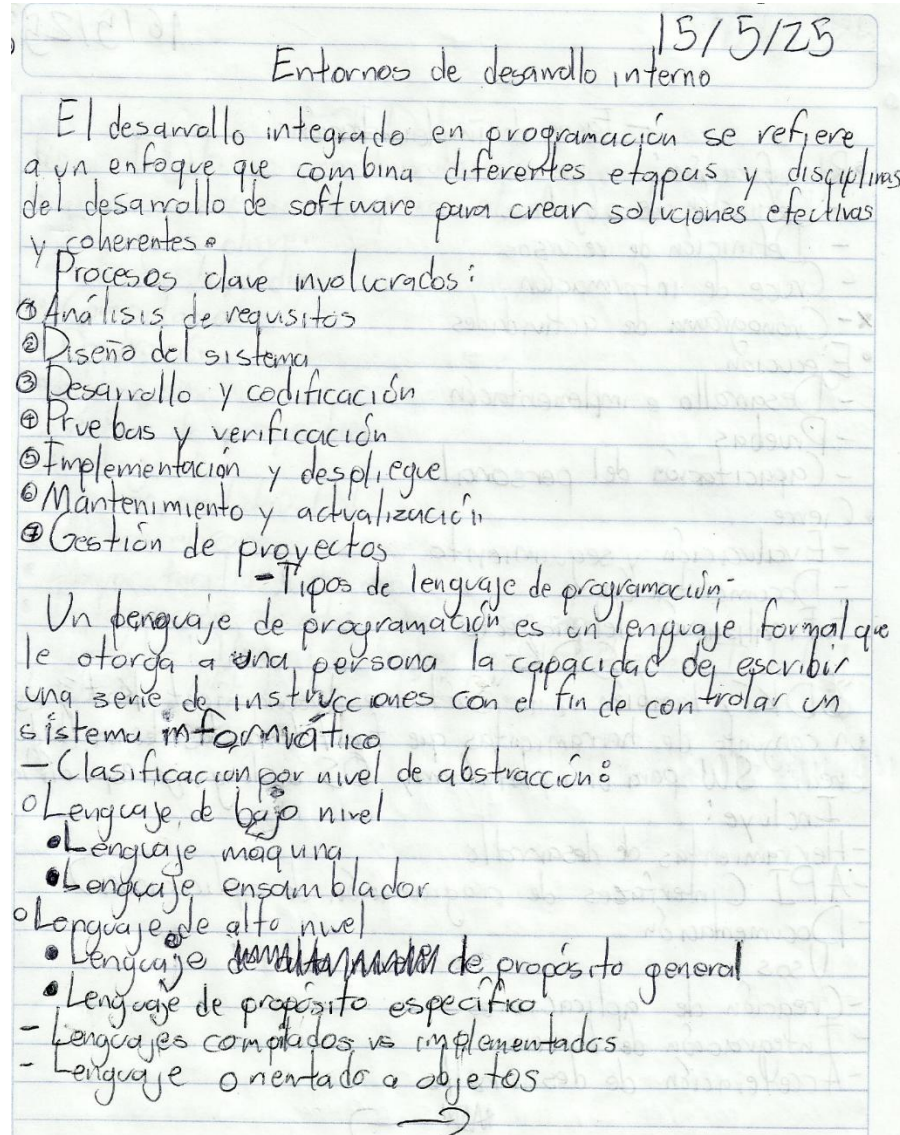 15/5/25
Entornos de desarrollo interno
El desarrollo integrado en programación se refiere
a un enfoque que combina diferentes etapas y disciplinas
del desarrollo de software para crear soluciones efectivas
y coherentes.
Procesos clave involucrados:
① Análisis de requisitos
② Diseño del sistema
③ Desarrollo y codificación
④ Pruebas y verificación
⑤ Implementación y despliegue
⑥ Mantenimiento y actualización
⑦ Gestión de proyectos
- Tipos de lenguaje de programación -
Un lenguaje de programación es un lenguaje formal que
le otorga a una persona la capacidad de escribir
una serie de instrucciones con el fin de controlar un
sistema informático
- Clasificacion por nivel de abstracción:
○ Lenguaje de bajo nivel
• Lenguaje máquina
• Lenguaje ensamblador
○ Lenguaje de alto nivel
• Lenguaje de propósito general
• Lenguaje de propósito específico
- Lenguajes compilados vs implementados
- Lenguaje orientado a objetos
→